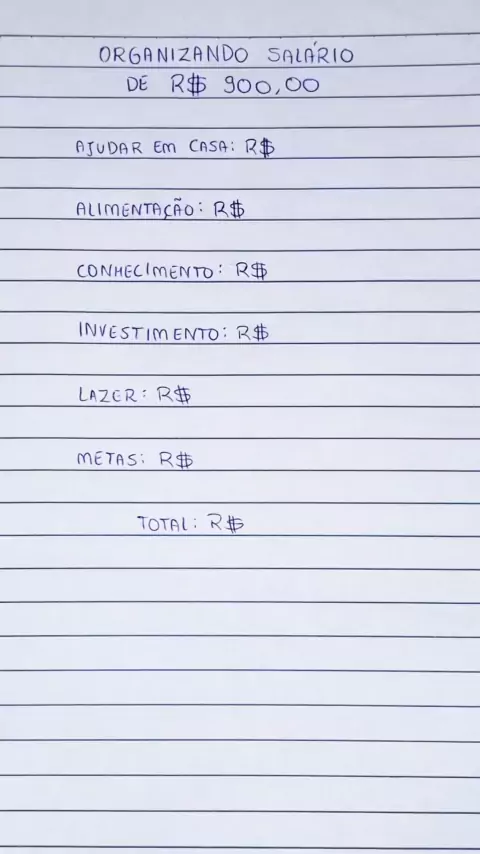 ORGANIZANDO SALÁRIO
DE R$ 900,00
AJUDAR EM CASA: R$
ALIMENTAÇÃO: R$
CONHECIMENTO: R$
INVESTIMENTO: R$
LAZER: R$
METAS: R$
TOTAL: R$